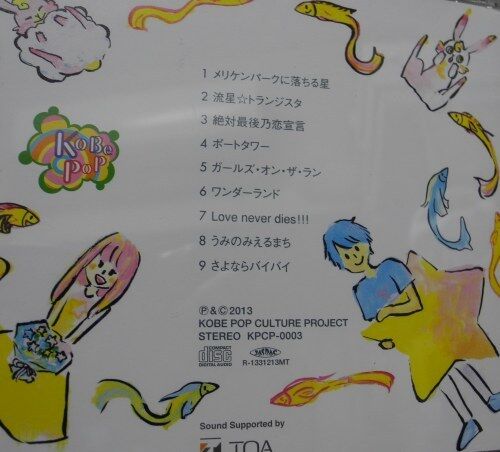 KOBE
POP
1 メリケンパークに落ちる星
2 流星☆トランジスタ
3 絶対最後乃恋宣言
4 ポートタワー
5 ガールズ・オン・ザ・ラン
6 ワンダーランド
7 Love never dies!!!
8 うみのみえるまち
9 さよならバイバイ
Ⓟ&©2013
KOBE POP CULTURE PROJECT
STEREO KPCP-0003
COMPACT
disc
DIGITAL AUDIO
R-1331213MT
Sound Supported by
TOA